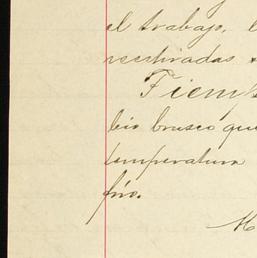 el trabajo,
Tiemp
bio brusco que
temperatura
frío.
M